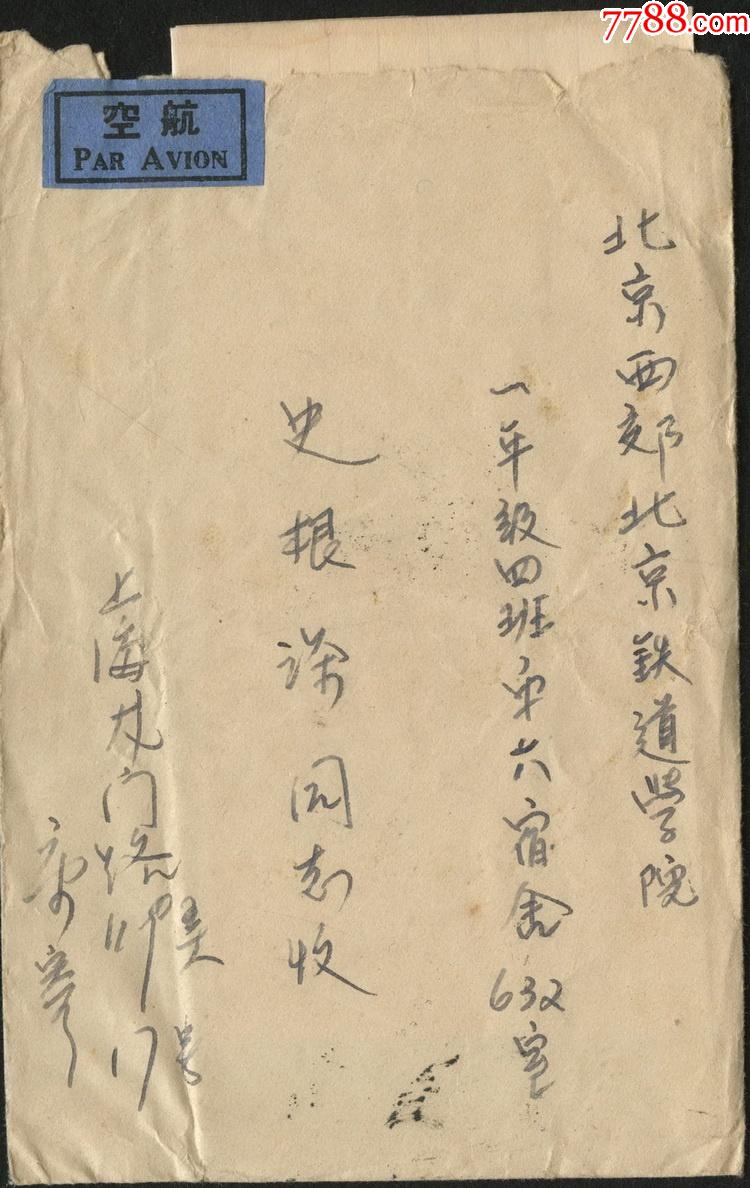 7788.com
航空
PAR AVION
北京西郊北京铁道学院
一年级四班第六宿舍632室
史根深同志收
上海龙门路
17号
寄